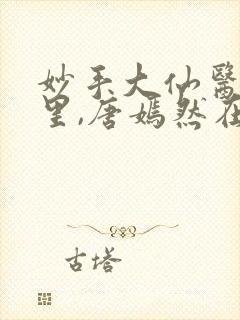 妙手大仙醫
里,唐嫣然在
古塔